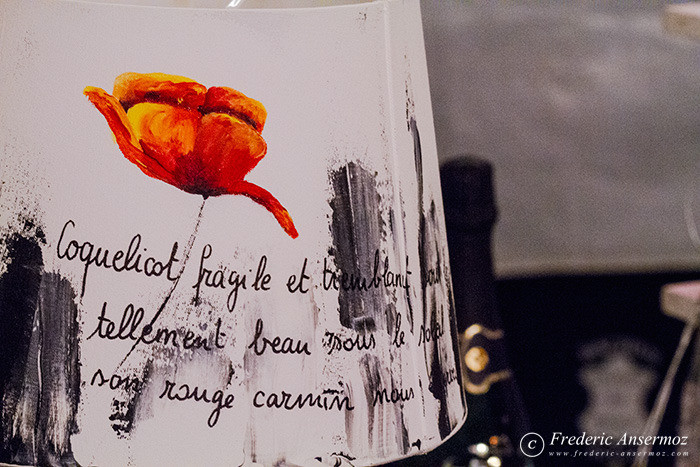 Coquelicot fragile et tremblant
tellement beau sous le soleil
son rouge carmin nous
© Frederic Ansermoz
www.frederic-ansermoz.com